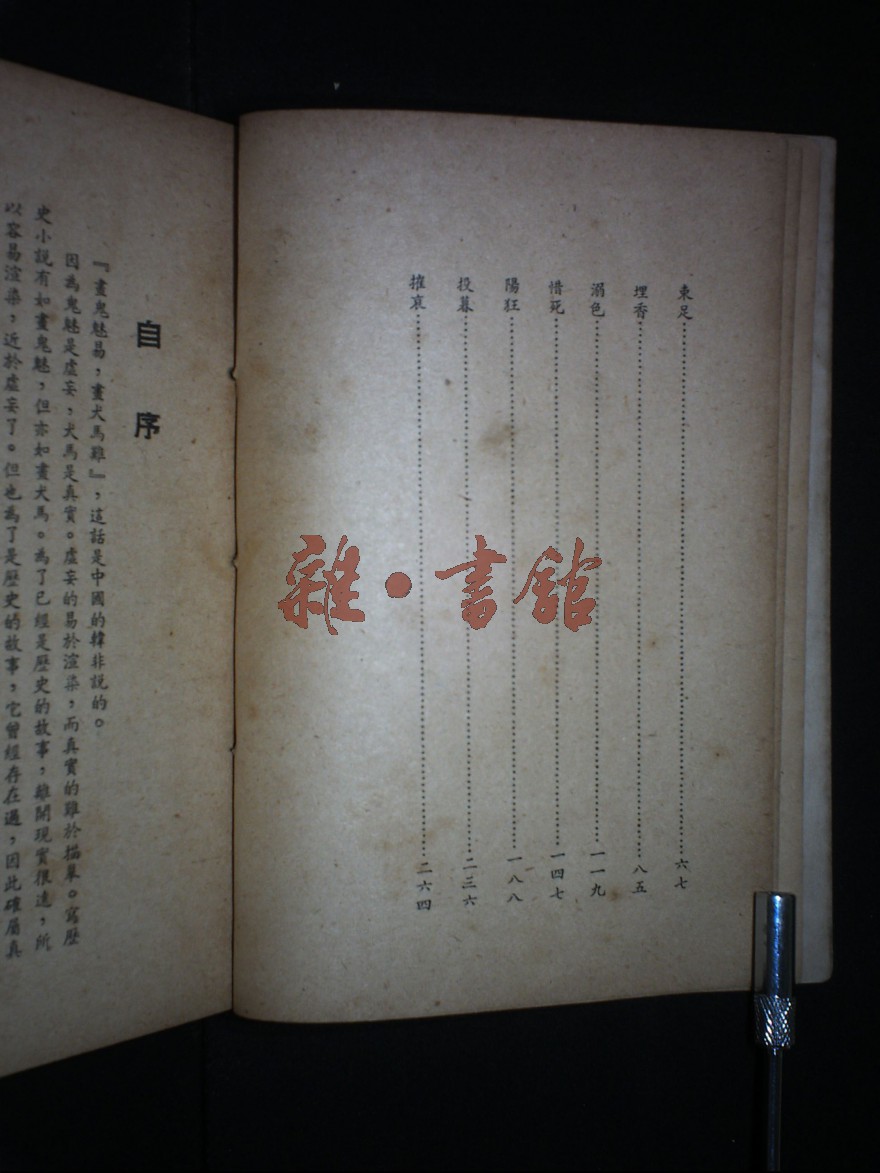 束足……六七
埋香……八五
溺色……一一九
惜死……一四七
陽狂……一八八
投暮……二三六
摧哀……二六四
自序
『畫鬼魅易，畫犬馬難』，這話是中國的韓非說的。
因為鬼魅是虛妄，犬馬是真實。虛妄的易於渲染，而真實的難於描摹。寫歷
史小說有如畫鬼魅，但亦如畫犬馬。為了已經是歷史的故事，離開現實很遠，所
以容易渲染，近於虛妄了。但也為了是歷史的故事，它曾經存在過，因此確屬真
雜·書館